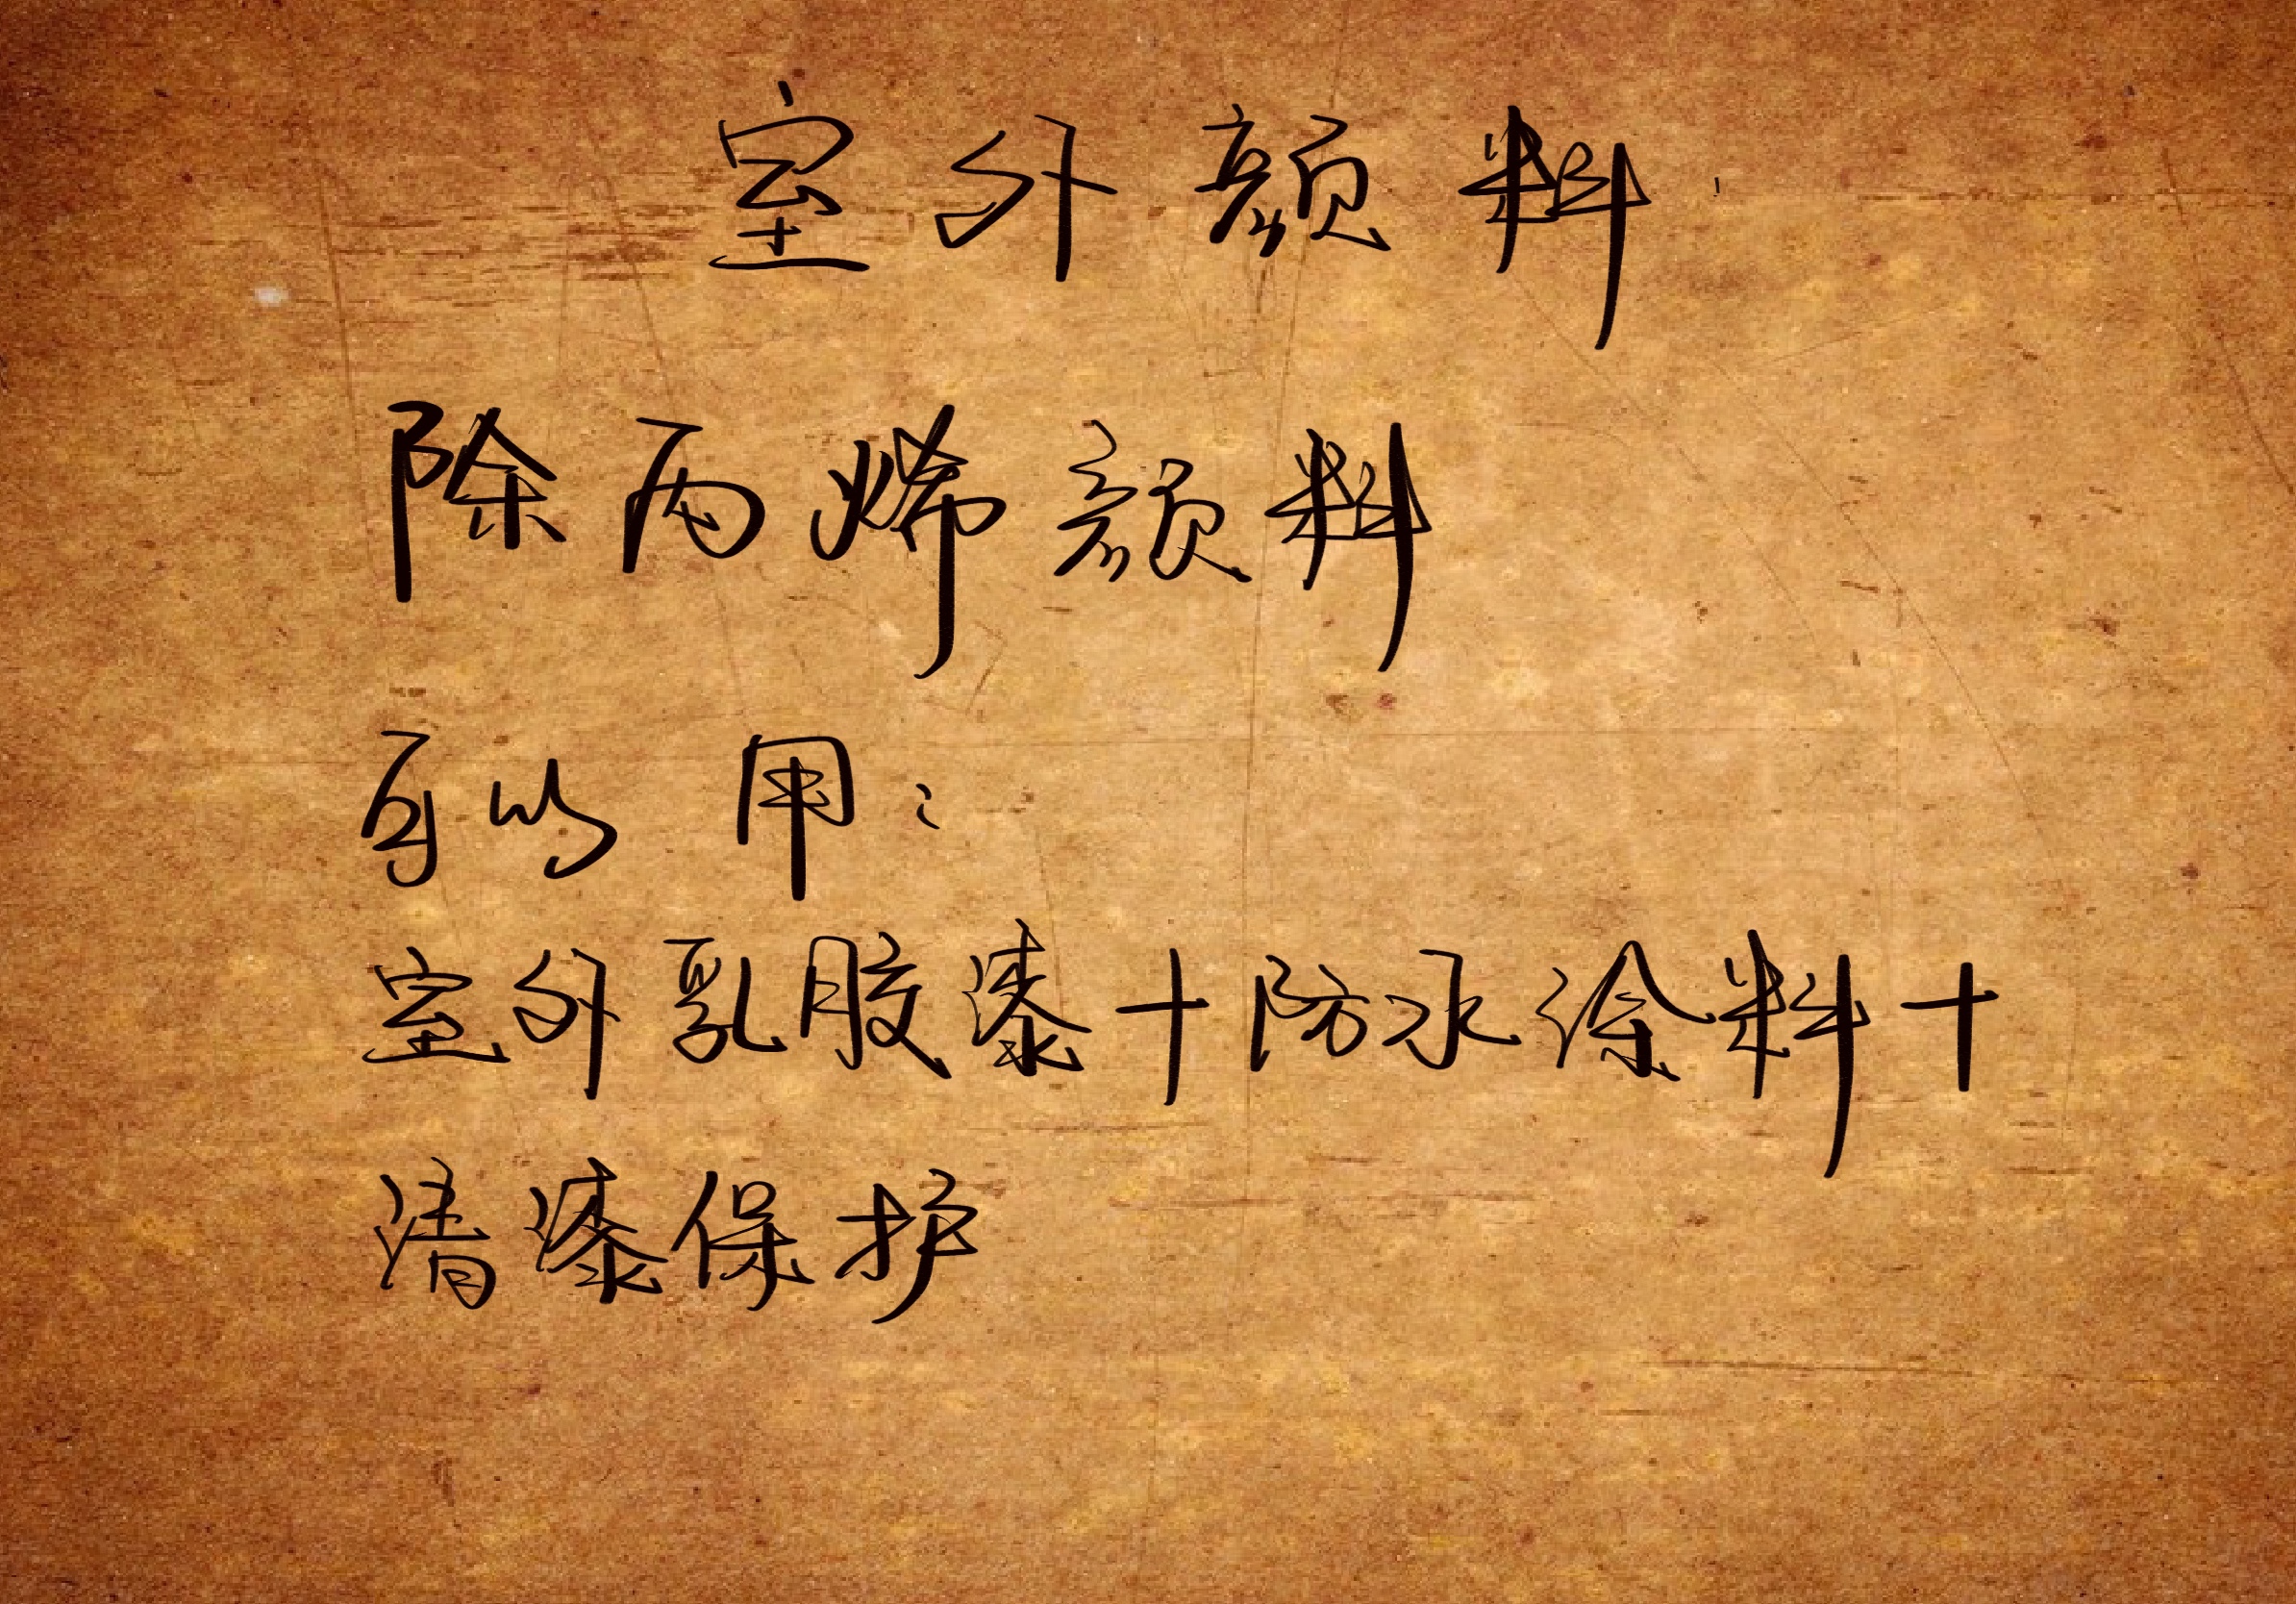 室外颜料
除丙烯颜料
可以用：
室外乳胶漆+防水涂料+
清漆保护